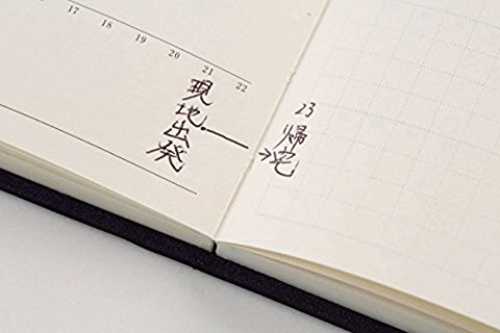 17 18 19 20 21 22
現地出発
23
帰宅